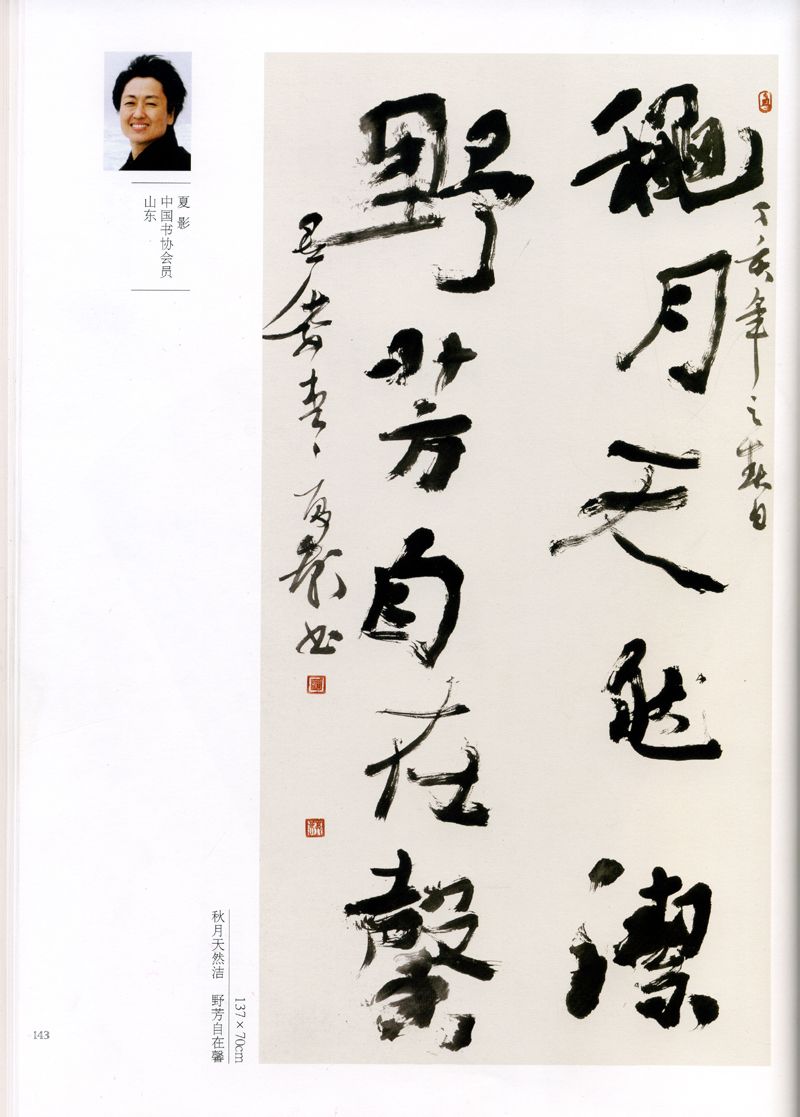 丁亥年之春日
穐月天然潔
野芳自在馨
夏影书
夏 影
中国书协会员
山东
137×70cm
秋月天然洁 野芳自在馨
143